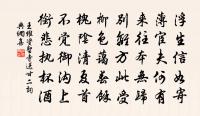 浮生信如寄
薄宦夫何有
來往本無歸
別離方此受
柳色藹春餘
槐陰清夏首
不覺御溝上
銜悲執杯酒
王維資聖寺送甘二